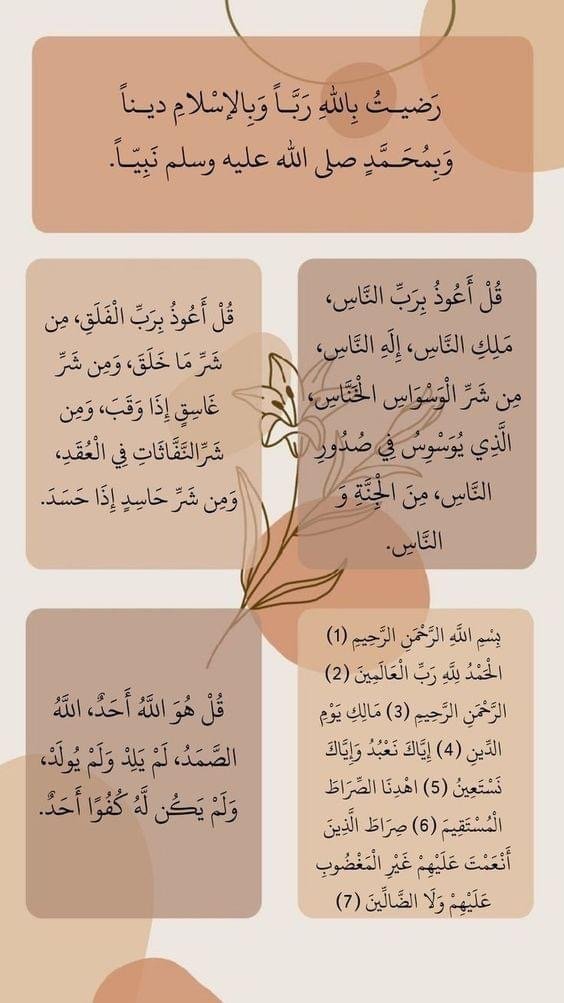 رَضيــتُ بِاللهِ رَبَّــاً وَبِالإسْلامِ ديــناً
وَبِمُحَــمَّدٍ صلى الله عليه وسلم نَبِيّــاً.
قُلْ أَعُوذُ بِرَبِّ النَّاسِ،
مَلِكِ النَّاسِ، إِلَهِ النَّاسِ،
مِن شَرِّ الْوَسْوَاسِ الْخَنَّاسِ،
الَّذِي يُوَسْوِسُ فِي صُدُورِ
النَّاسِ، مِنَ الْجِنَّةِ وَ
النَّاسِ.
قُلْ أَعُوذُ بِرَبِّ الْفَلَقِ، مِن
شَرِّ مَا خَلَقَ، وَمِن شَرِّ
غَاسِقٍ إِذَا وَقَبَ، وَمِن
شَرِّالنَّفَّاثَاتِ فِي الْعُقَدِ،
وَمِن شَرِّ حَاسِدٍ إِذَا حَسَدَ.
بِسْمِ اللَّهِ الرَّحْمَنِ الرَّحِيمِ (1)
الْحَمْدُ لِلَّهِ رَبِّ الْعَالَمِينَ (2)
الرَّحْمَنِ الرَّحِيمِ (3) مَالِكِ يَوْمِ
الدِّينِ (4) إِيَّاكَ نَعْبُدُ وَإِيَّاكَ
نَسْتَعِينُ (5) اهْدِنَا الصِّرَاطَ
الْمُسْتَقِيمَ (6) صِرَاطَ الَّذِينَ
أَنْعَمْتَ عَلَيْهِمْ غَيْرِ الْمَغْضُوبِ
عَلَيْهِمْ وَلَا الضَّالِّينَ (7)
قُلْ هُوَ اللَّهُ أَحَدٌ، اللَّهُ
الصَّمَدُ، لَمْ يَلِدْ وَلَمْ يُولَدْ،
وَلَمْ يَكُن لَّهُ كُفُوًا أَحَدٌ.